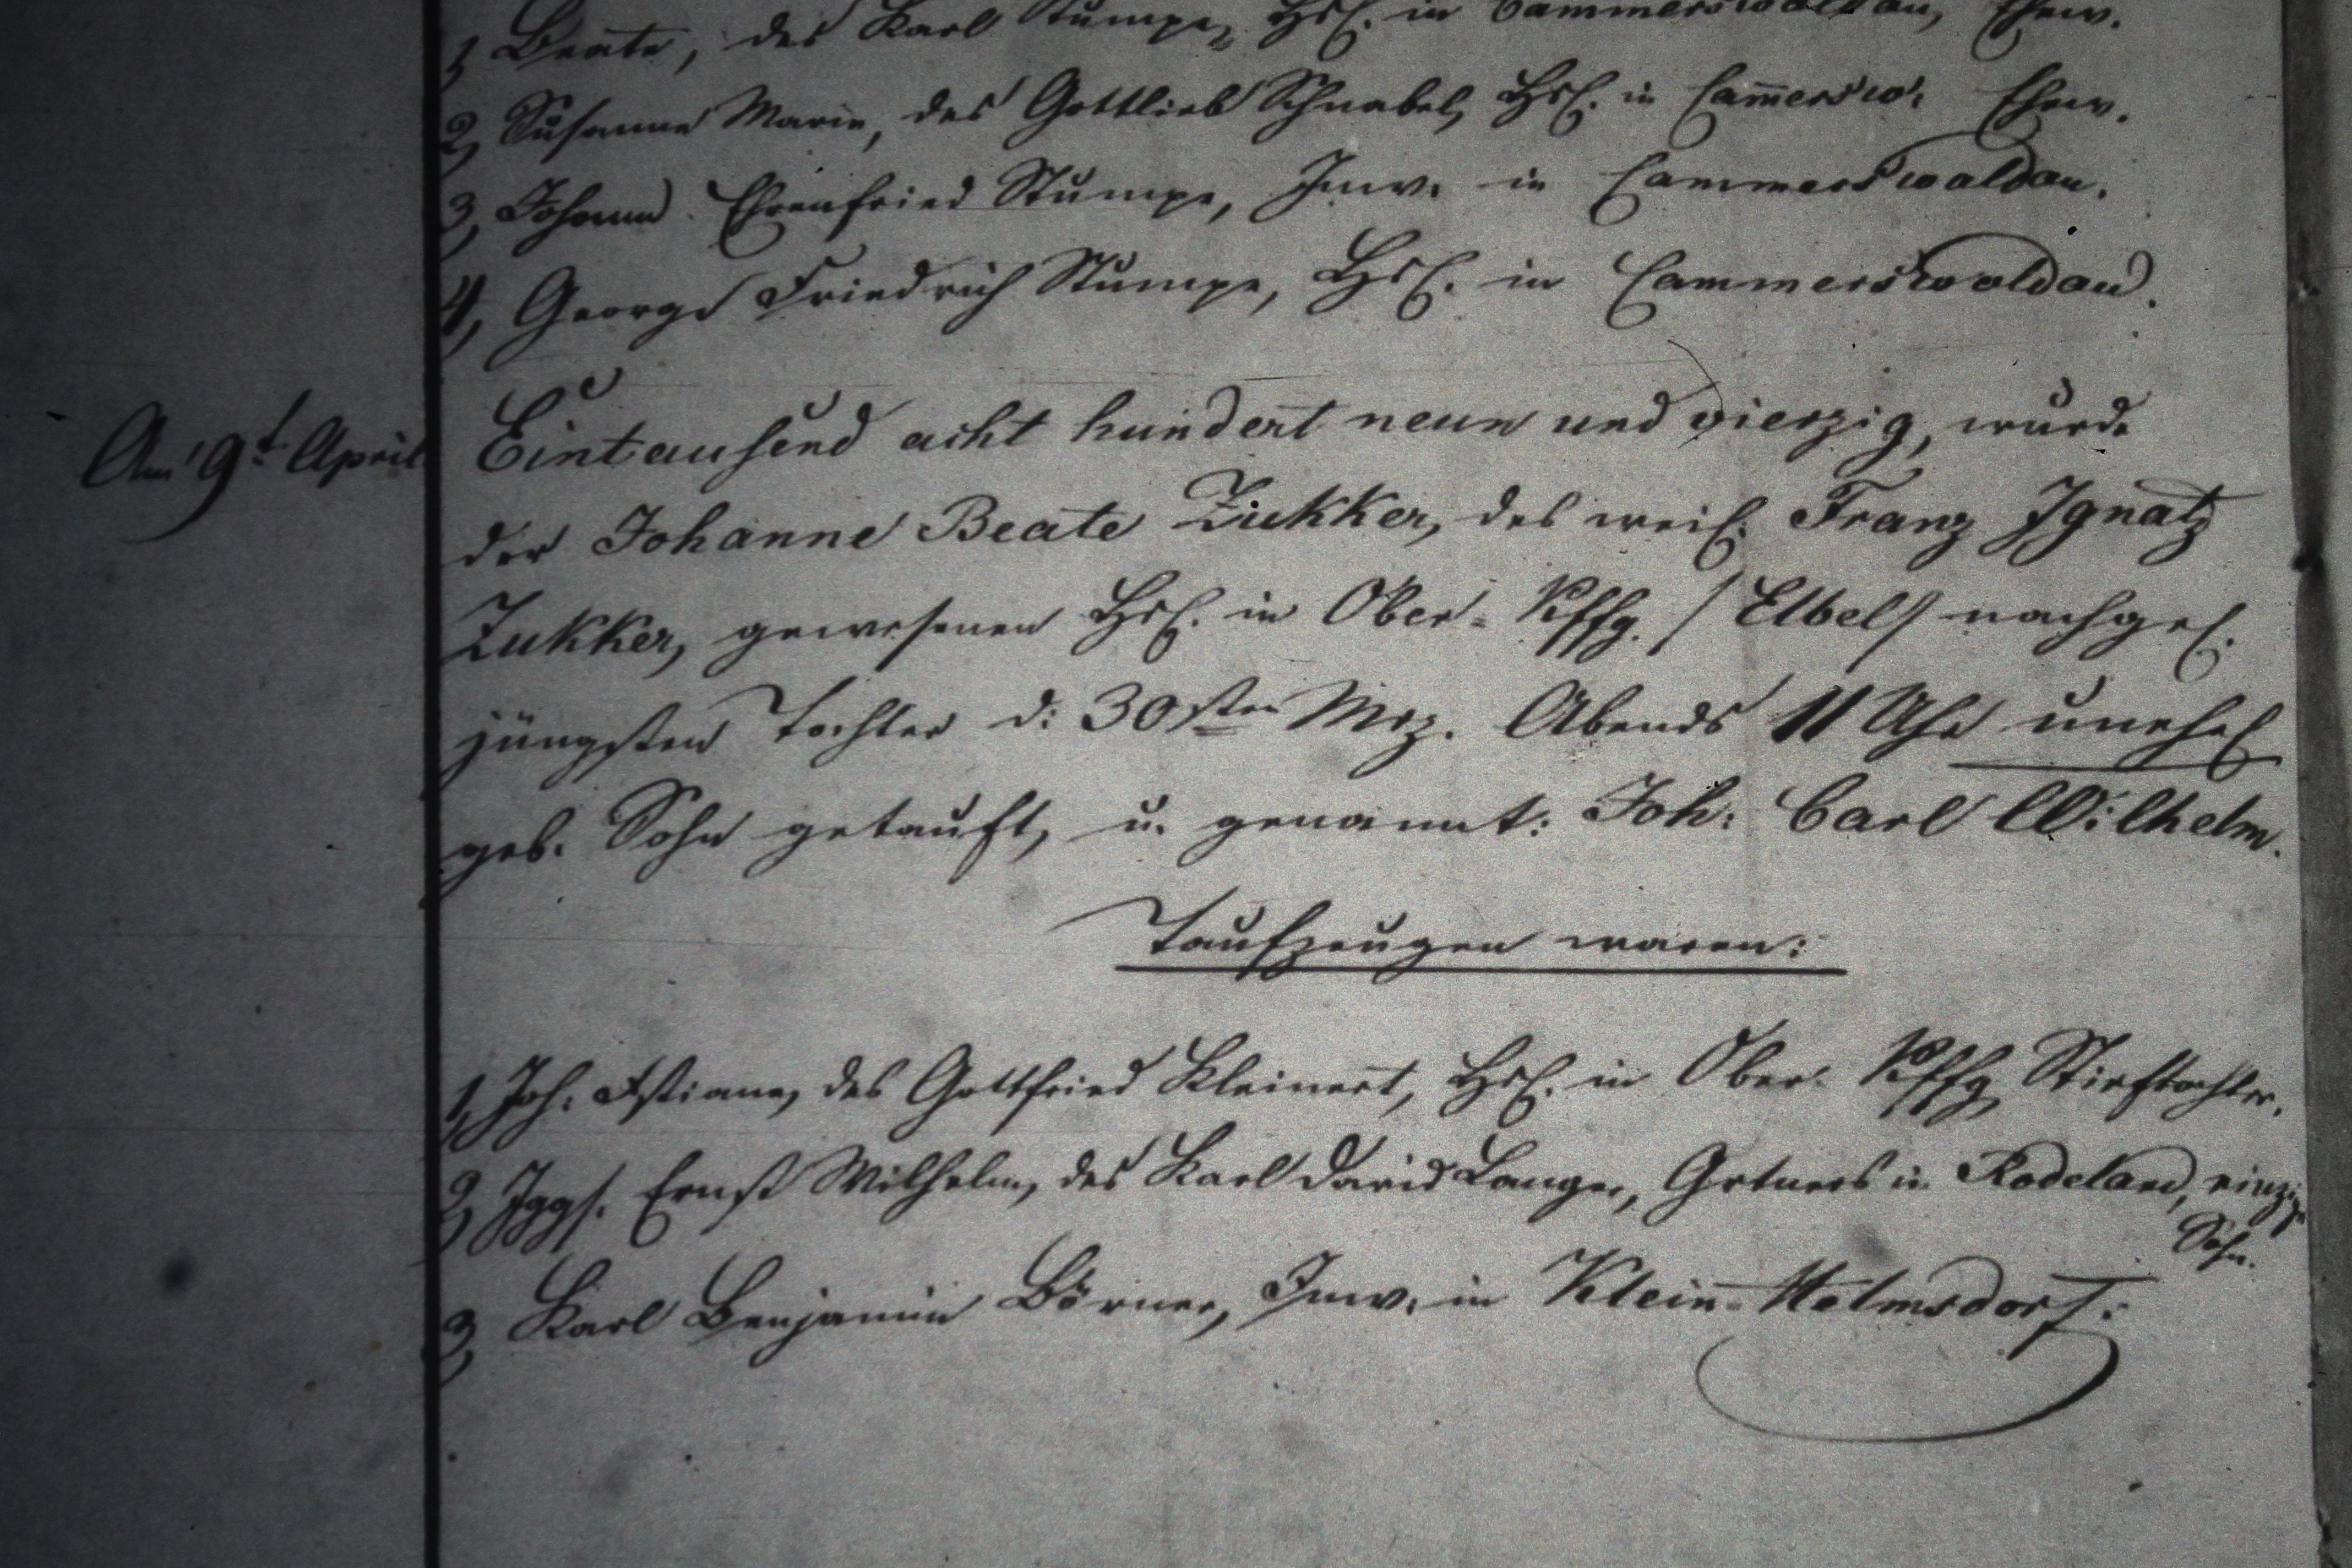 1, Beate, des Karl Stumpe, Hsl. in Cammerswaldau, Ehew.
2, Susanne Marie, des Gottlieb Schnabel, Hsl. in Cam̅ersw: Ehew.
3, Johann Ehrenfried Stumpe, Inw. in Cammerswaldau.
4, George Friedrich Stumpe, Hsl. in Cammerswaldau.
Am 9t. April Eintausend acht hundert neun und vierzig, wurde
der Johanne Beate Zukker, des weil. Franz Ignatz
Zukker, gewesenen Hsl. in Ober-Kffg. /Elbel/ nachgel.
jüngsten Tochter d: 30sten Mrz. Abends 11 Uhr unehel
geb. Sohn getauft, u. genannt: Joh: Carl Wilhelm.
Taufzeugen waren:
1, Joh: des Gottfried Kleinert, Hsl. in Ober-Kffg Stieftochter.
2, Jggs. Ernst Wilhelm, des Karl David Langer, Grtners in Rodeland, einzig
Sohn.
3, Karl Benjamin Börner, Inw. in Klein-Helmsdorf.